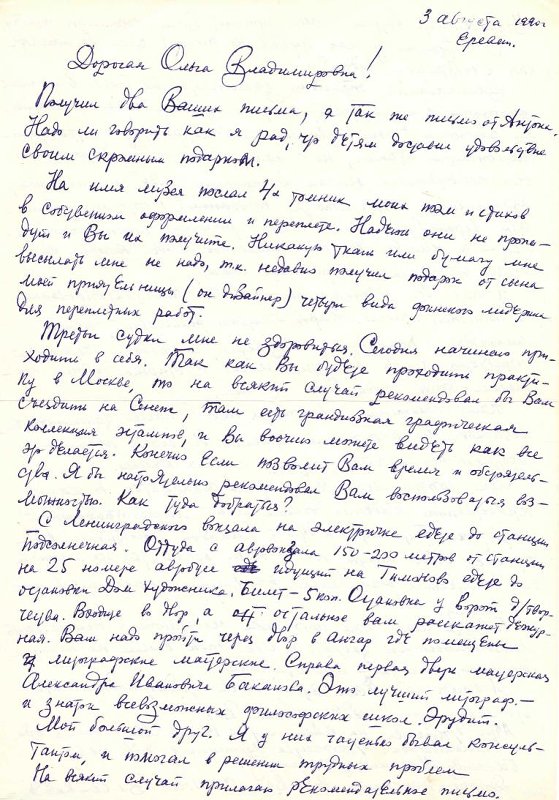 3 августа 1990г
Ереван.
Дорогая Ольга Владимировна!
Получил два Ваших письма, а так же письмо от Антона.
Надо ли говорить как я рад, что детям доставил удовольствие
своим скромным подарком.
На имя музея послал 4х томник моих поэм и стихов
в собственном оформлении и переплете. Надеюсь они не пропа-
дут и Вы их получите. Никакую ткань или бумагу мне
высылать мне не надо, т.к. недавно получил подарок от сына
моей приятельницы (он дизайнер) четыре вида финского ледерина
для переплетных работ.
Третьи сутки мне не здоровится. Сегодня начинаю при-
ходить в себя. Так как Вы будете проходить практи-
ку в Москве, то на всякий случай рекомендовал бы Вам
съездить на Сенеж, там есть грандиозная графическая
коллекция эстампов, и Вы воочию можете видеть как все
это делается. Конечно если позволит Вам время и обстоятель-
ства. Я бы настоятельно рекомендовал Вам воспользоваться воз-
можностью. Как туда добраться?
С Ленинградского вокзала на электричке едете до станции
Подсолнечная. Оттуда с автовокзала 150-200 метров от станции
на 25 номере автобусе идущий на Тимоново едете до
остановки Дом Художника. Билет - 5 коп. Остановка у ворот д/твор-
чества. Входите во двор, а остальное вам расскажет дежур-
ная. Вам надо пройти через двор в ангар где помещены
литографские мастерские. Справа первая дверь мастерская
Александра Ивановича Баканова. Это лучший литограф. -
и знаток всевозможных философских школ. Эрудит.
Мой большой друг. Я у них частенько бывал консуль-
тантом, и помогал в решении трудных проблем
На всякий случай прилагаю рекомендательное письмо.